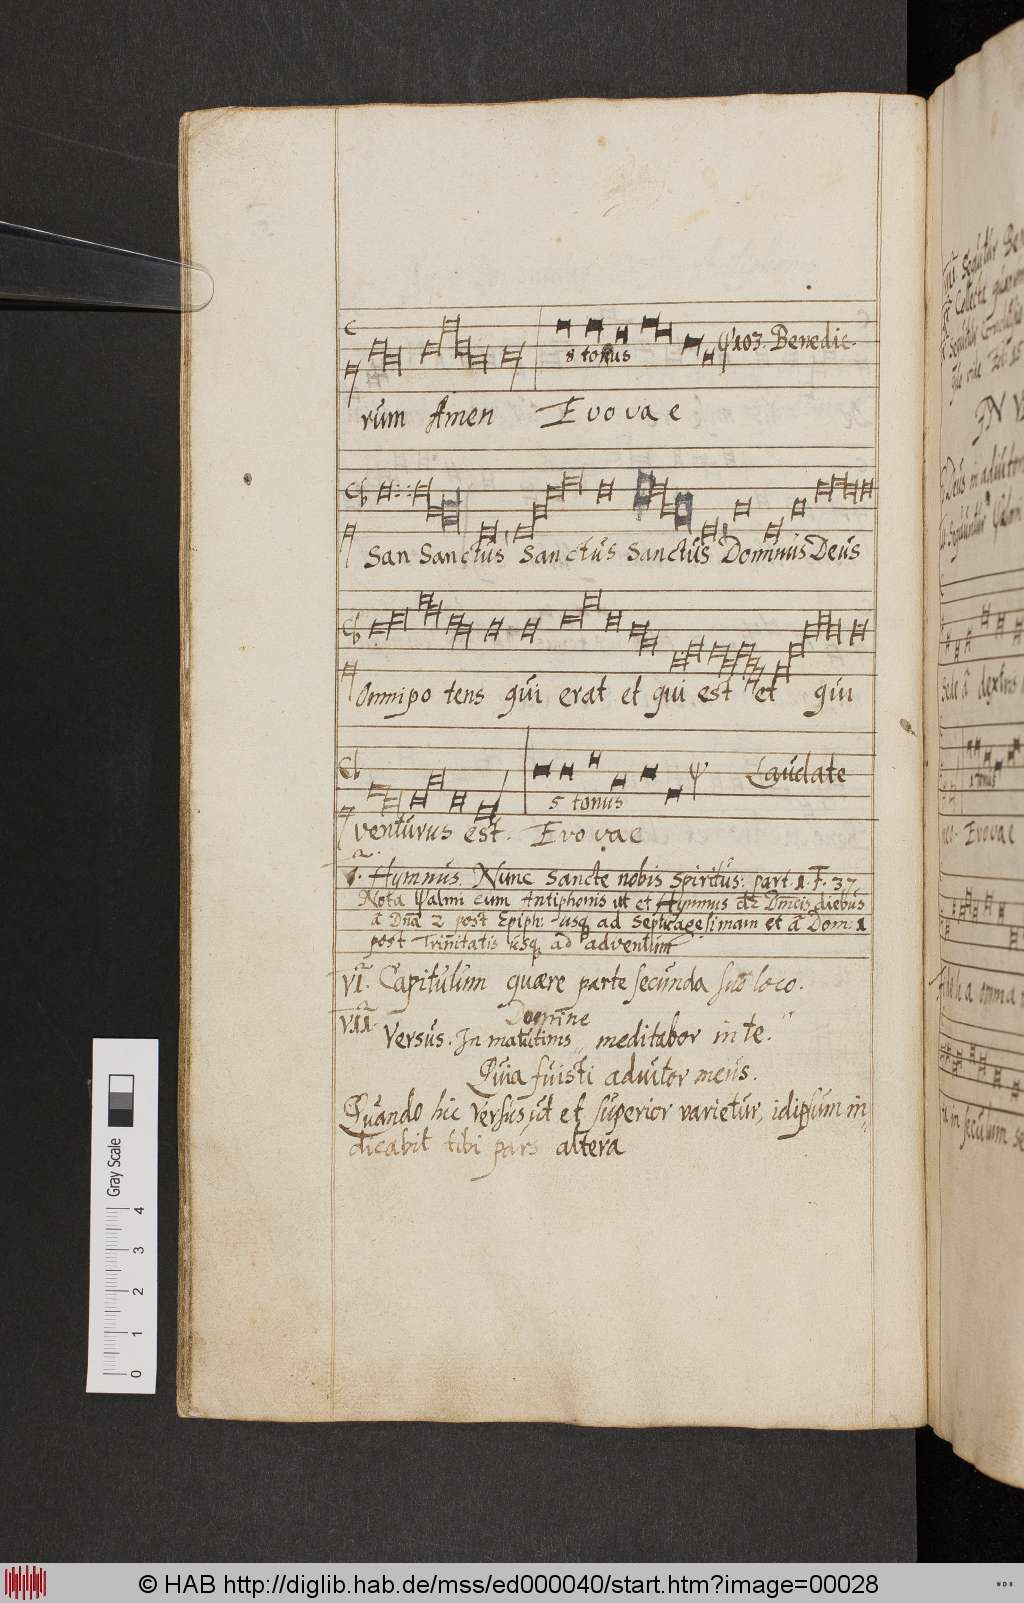 8 tonus ψ 103. Benedic-
rum Amen Evovae
San Sanctus Sanctus Sanctus Dominus Deus
Omnipotens qui erat et qui est et qui
5 tonus ψ Laudate
venturus est. Evovae
Hymnus. Nunc Sancte nobis Spiritus: part. 1. F. 37
Nota Psalmi cum Antiphonis ut et Hymnus diebus
ā Dnā 2 post Epiph: usq ad Septuagesimam et ā Dom: 1
post Trinitatis usq ad adventum
VI. Capitulum quære parte secunda suo loco.
Domine
VII. Versus. In matutinis meditabor in te.
Quia fuisti adiutor meus.
Quando hic Versus, ut et superior varietur, idipsum in
dicabit tibi pars altera
Gray Scale
0 1 2 3 4
© HAB http://diglib.hab.de/mss/ed000040/start.htm?image=00028